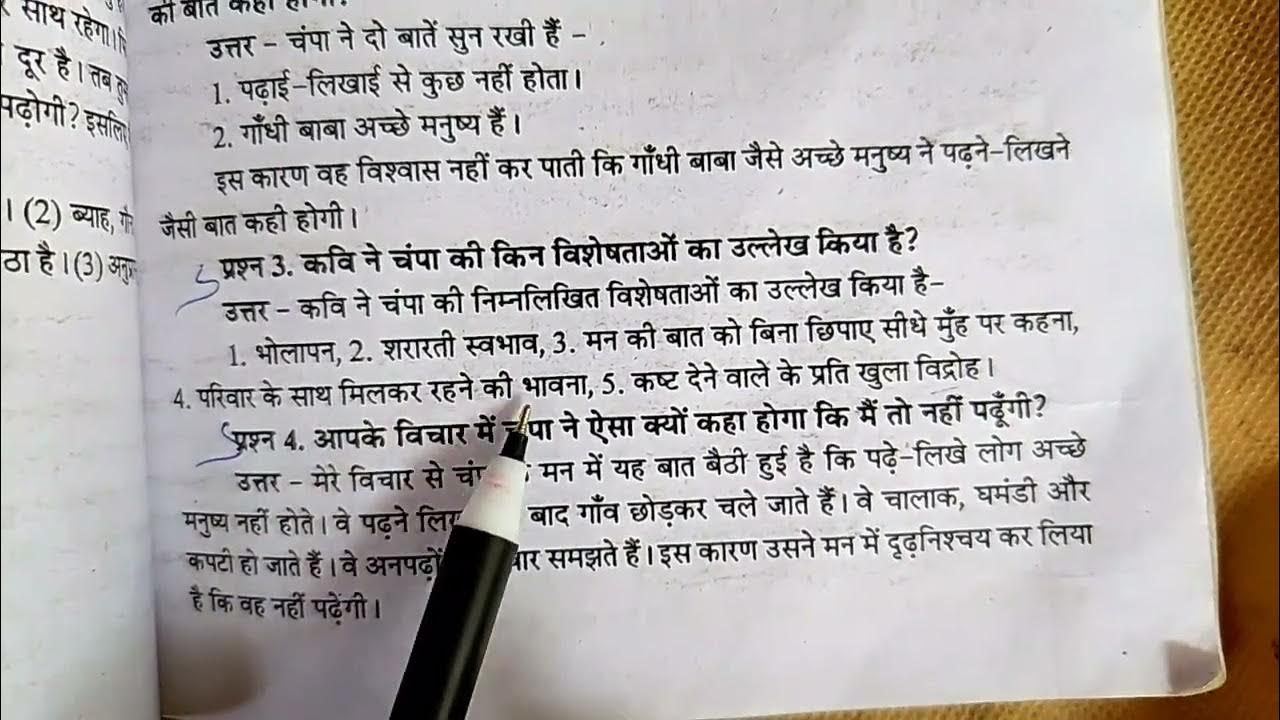 साथ रहेगा।
दूर है। तब
पढ़ोगी? इसलिए
। (2) ब्याह,
ठा है। (3)
की बात कही
उत्तर – चंपा ने दो बातें सुन रखी हैं –
1. पढ़ाई-लिखाई से कुछ नहीं होता।
2. गाँधी बाबा अच्छे मनुष्य हैं।
इस कारण वह विश्वास नहीं कर पाती कि गाँधी बाबा जैसे अच्छे मनुष्य ने पढ़ने-लिखने
जैसी बात कही होगी।
प्रश्न 3. कवि ने चंपा की किन विशेषताओं का उल्लेख किया है?
उत्तर – कवि ने चंपा की निम्नलिखित विशेषताओं का उल्लेख किया है–
1. भोलापन, 2. शरारती स्वभाव, 3. मन की बात को बिना छिपाए सीधे मुँह पर कहना,
4. परिवार के साथ मिलकर रहने की भावना, 5. कष्ट देने वाले के प्रति खुला विद्रोह।
प्रश्न 4. आपके विचार में चंपा ने ऐसा क्यों कहा होगा कि मैं तो नहीं पढूँगी?
उत्तर – मेरे विचार से मन में यह बात बैठी हुई है कि पढ़े-लिखे लोग अच्छे
मनुष्य नहीं होते। वे पढ़ने बाद गाँव छोड़कर चले जाते हैं। वे चालाक, घमंडी और
कपटी हो जाते हैं। वे अनपढ़ों समझते हैं। इस कारण उसने मन में दृढ़निश्चय कर लिया
है कि वह नहीं पढ़ेंगी।